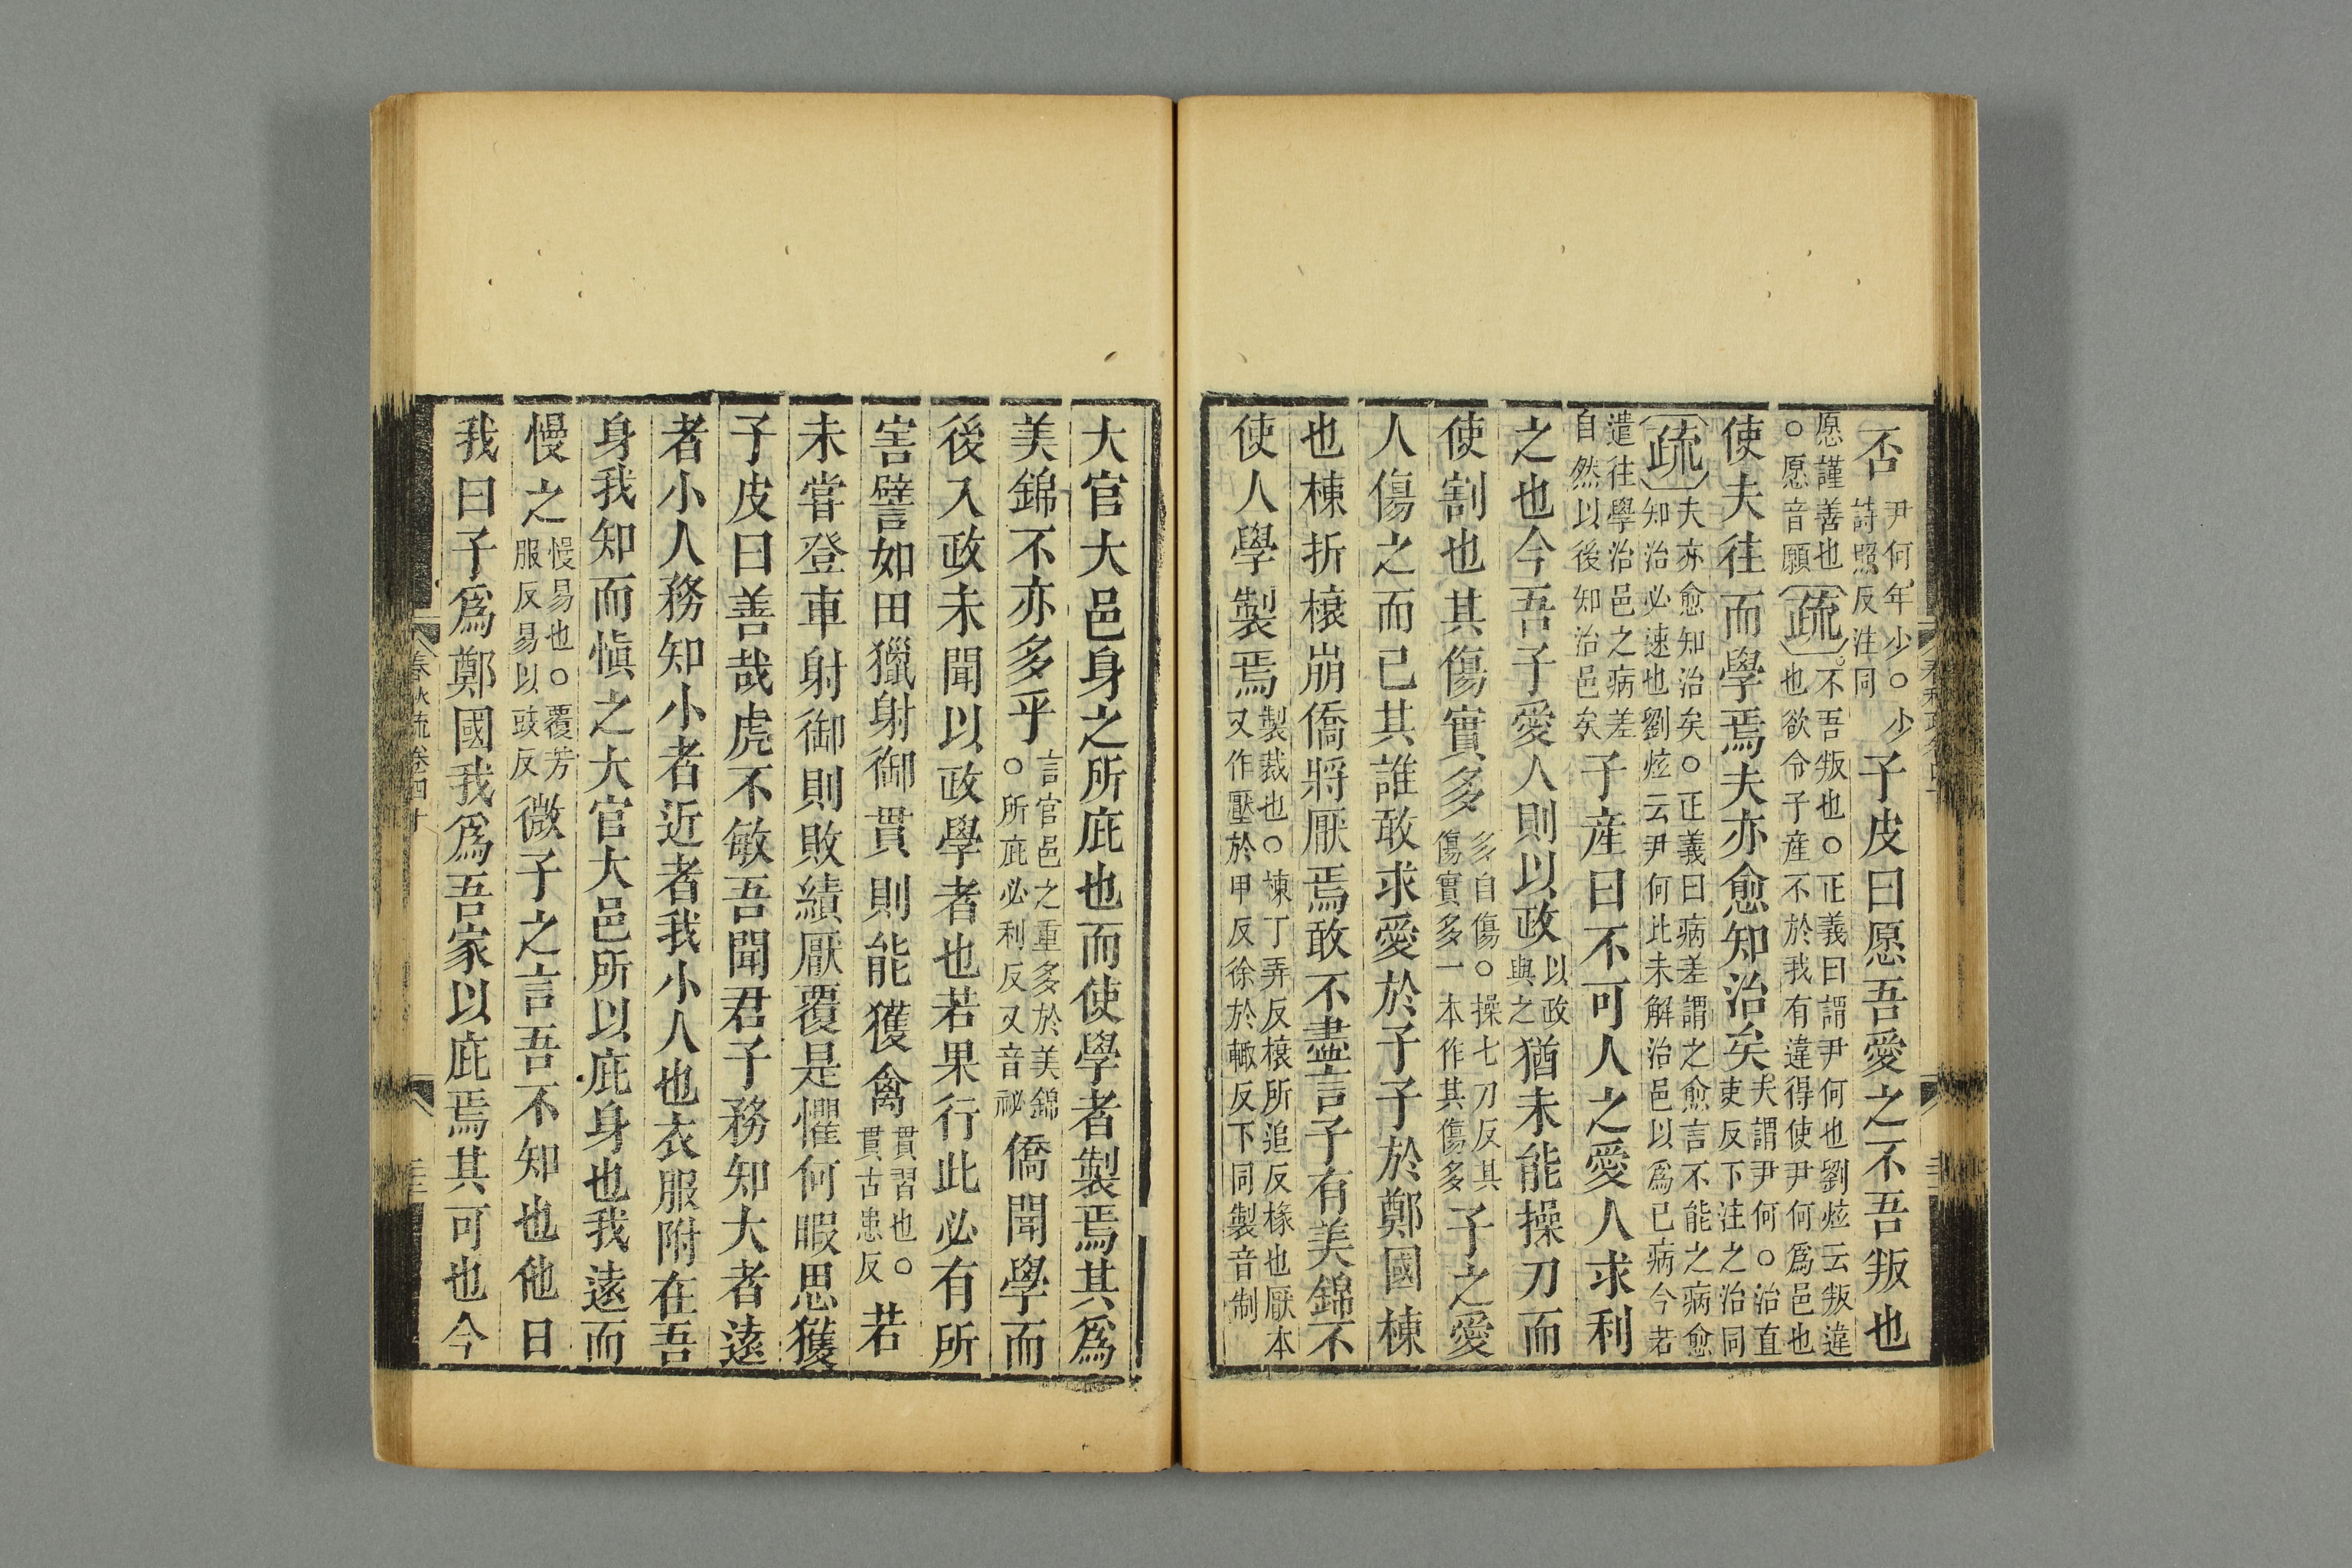 否尹何年少○少詩照反注同子皮曰愿吾愛之不吾叛也
愿謹善也○愿音願疏不吾叛也○正義曰謂尹何也劉炫云叛違也欲令子產不於我有違得使尹何爲邑也
使夫往而學焉夫亦愈知治矣夫謂尹何○治直吏反下注之治同
疏夫亦愈知治矣○正義曰病差謂之愈言不能之病愈知治必速也劉炫云尹何比未解治邑以爲已病今若
遣往學治邑之病差自然以後知治邑矣子產曰不可人之愛人求利
之也今吾子愛人則以政以政與之猶未能操刀而
使割也其傷實多多自傷○操七刀反其傷實多一本作其傷多子之愛
人傷之而已其誰敢求愛於子子於鄭國棟
也棟折榱崩僑將厭焉敢不盡言子有美錦不
使人學製焉製裁也○棟丁弄反榱所追反椽也厭本又作壓於甲反徐於輒反下同製音制
大官大邑身之所庇也而使學者製焉其爲
美錦不亦多乎言官邑之重多於美錦○所庇必利反又音祕僑聞學而
後入政未聞以政學者也若果行此必有所
害譬如田獵射御貫則能獲禽貫習也○貫古患反若
未嘗登車射御則敗績厭覆是懼何暇思獲
子皮曰善哉虎不敏吾聞君子務知大者遠
者小人務知小者近者我小人也衣服附在吾
身我知而愼之大官大邑所以庇身也我遠而
慢之慢易也○覆芳服反易以豉反微子之言吾不知也他日
我曰子爲鄭國我爲吾家以庇焉其可也今
春秋疏卷四十